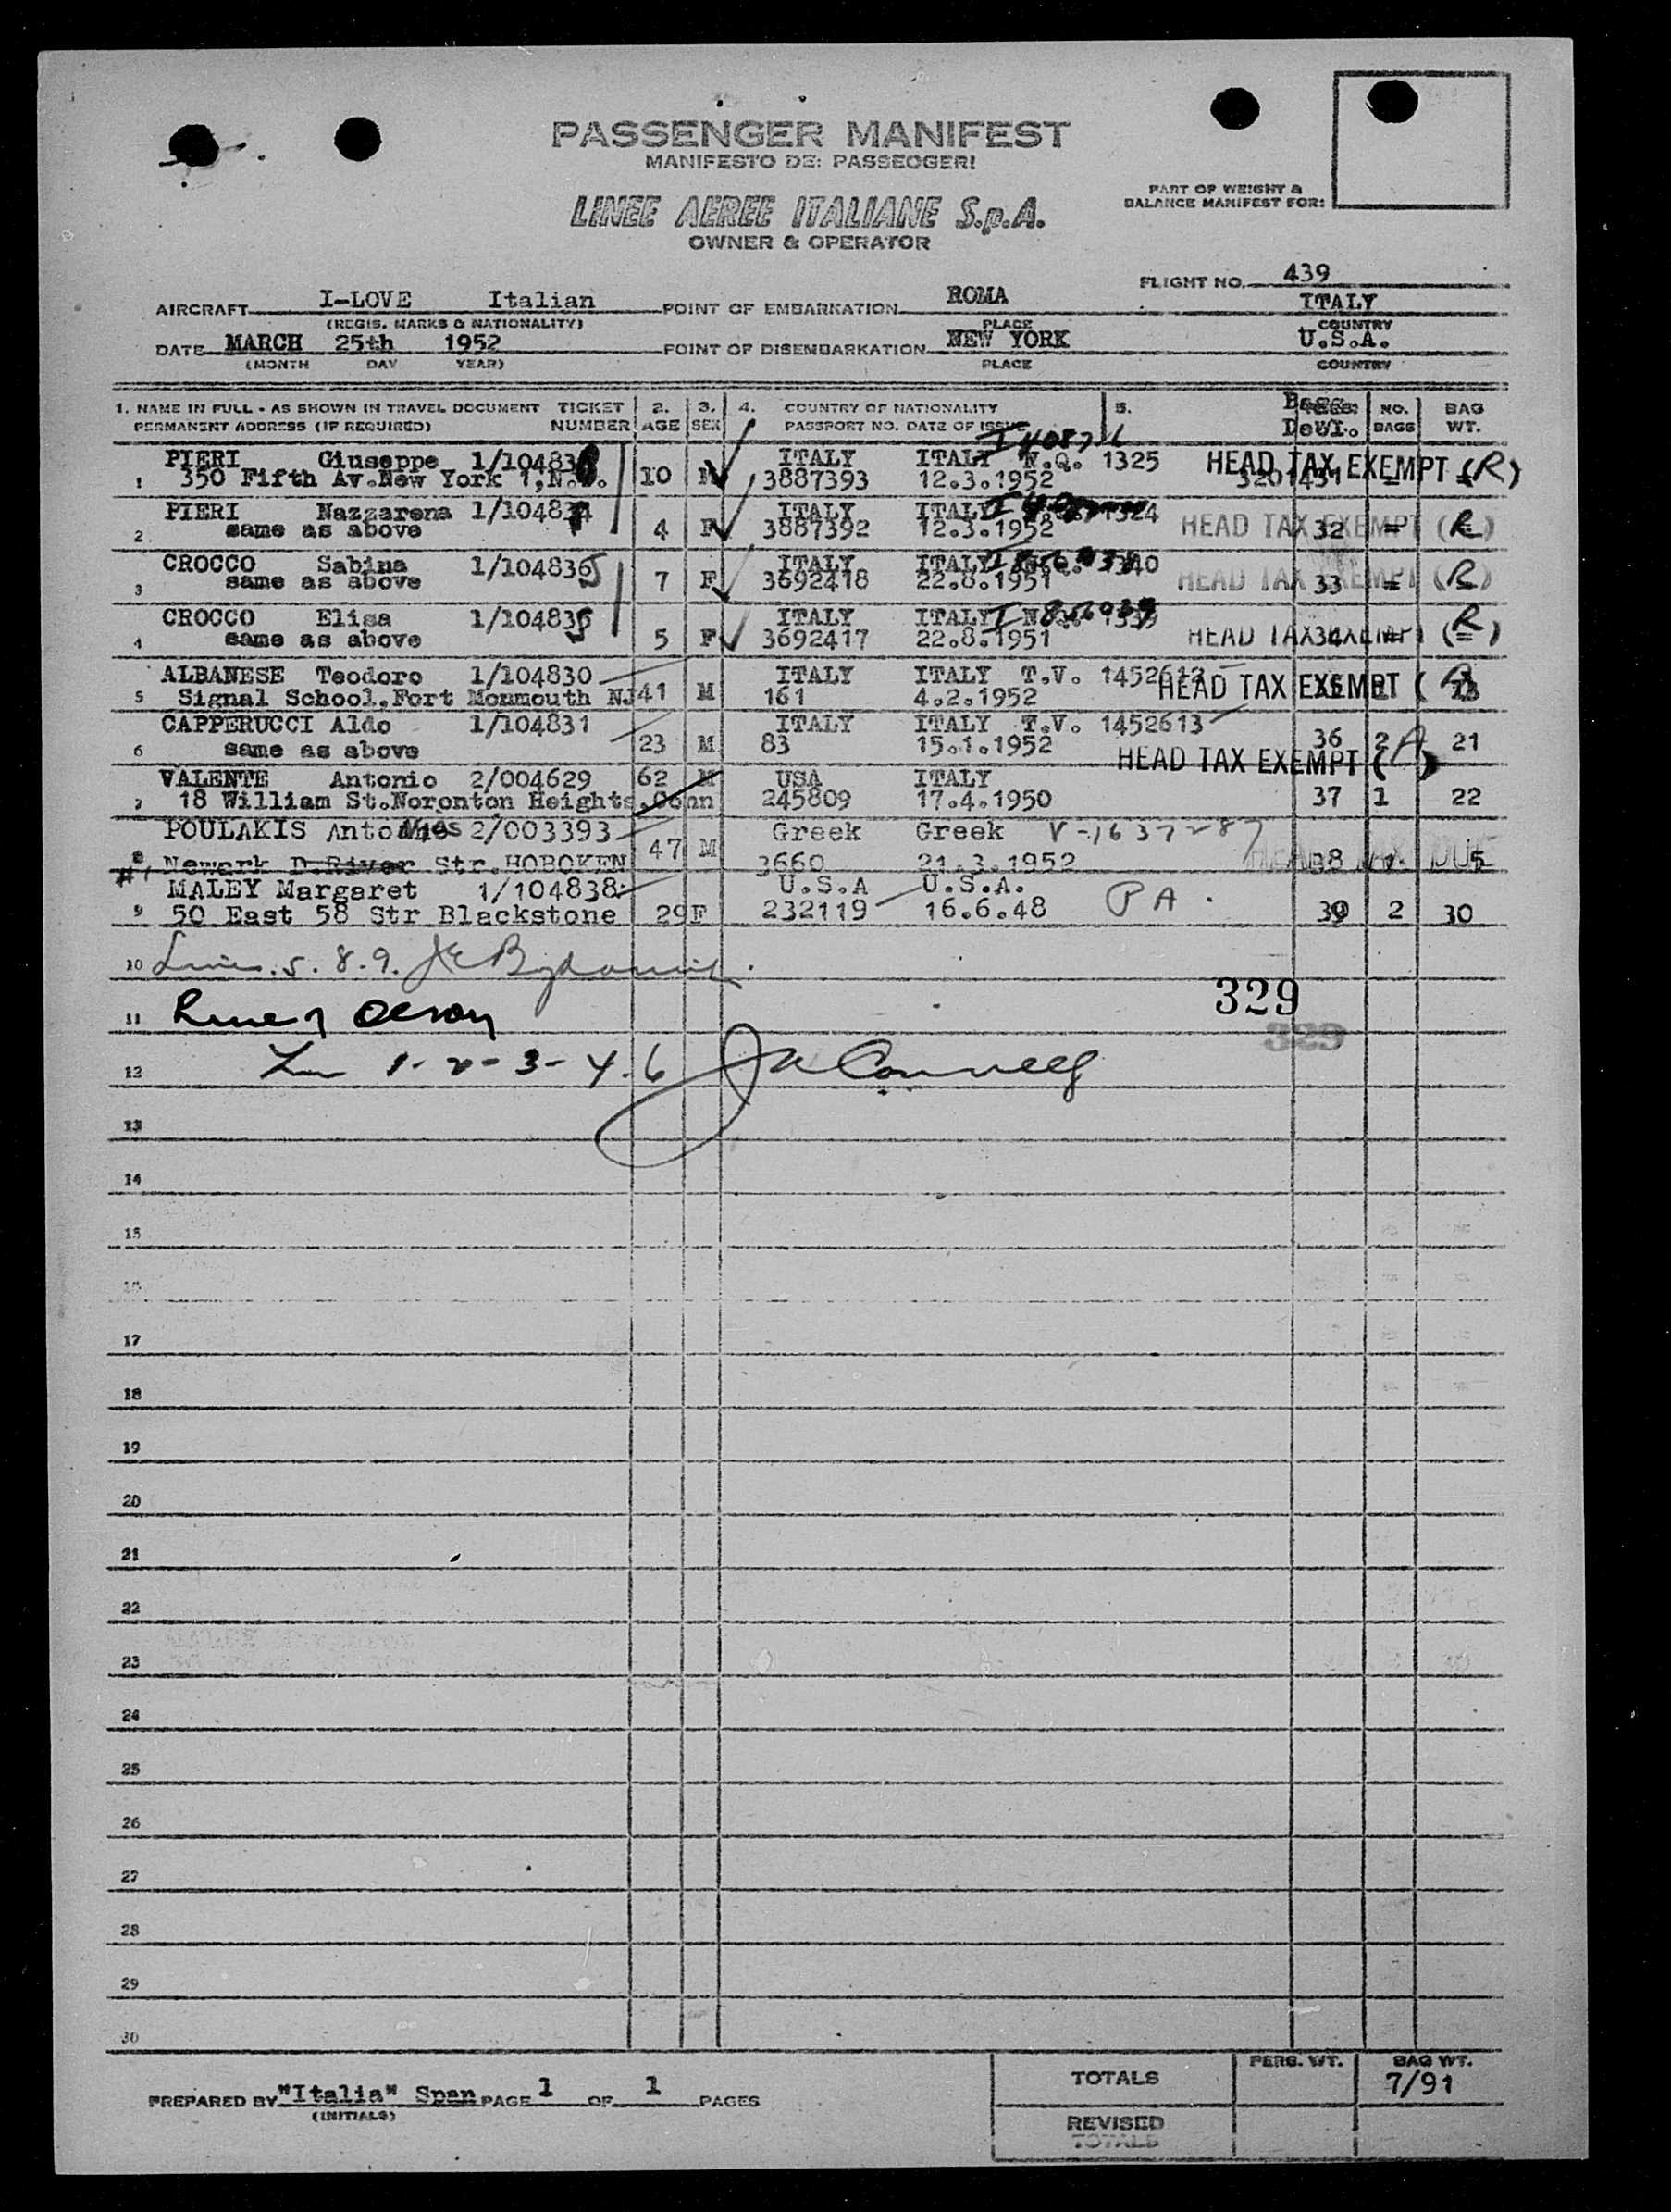 PASSENGER MANIFEST
MANIFESTO DEI PASSEGGERI
LINEE AEREE ITALIANE S.p.A.
OWNER & OPERATOR
PART OF WEIGHT &
BALANCE MANIFEST FOR:
FLIGHT NO. 439
AIRCRAFT I-LOVE Italian POINT OF EMBARKATION ROMA ITALY
(REGIS. MARKS & NATIONALITY) PLACE COUNTRY
DATE MARCH 25th 1952 POINT OF DISEMBARKATION NEW YORK U.S.A.
(MONTH DAY YEAR) PLACE COUNTRY
1. NAME IN FULL - AS SHOWN IN TRAVEL DOCUMENT TICKET 2. 3. 4. COUNTRY OF NATIONALITY 5. NO. BAG
PERMANENT ADDRESS (IF REQUIRED) NUMBER AGE SEX PASSPORT NO. DATE OF ISSUE BAGS WT.
PIERI Giuseppe ITALY ITALY N.Q. 1325 HEAD TAX EXEMPT (R)
1 350 Fifth Av.New York 1,N.Y. 10 M 3887393 12.3.1952 3201431
PIERI Nazzarena ITALY ITALY 1324 HEAD TAX EXEMPT (R)
2 same as above 4 F 3887392 12.3.1952 32 =
CROCCO Sabina ITALY ITALY 1340 HEAD TAX EXEMPT (R)
3 same as above 7 F 3692418 22.8.1951 33 =
CROCCO Elisa ITALY ITALY 1339 HEAD TAX EXEMPT (R)
4 same as above 5 F 3692417 22.8.1951 34
ALBANESE Teodoro 1/104830 ITALY ITALY T.V. 1452612 HEAD TAX EXEMPT
5 Signal School.Fort Monmouth NJ 41 M 161 4.2.1952
CAPPERUCCI Aldo 1/104831 ITALY ITALY T.V. 1452613
6 same as above 23 M 83 15.1.1952 36 2 21
HEAD TAX EXEMPT (A)
VALENTE Antonio 2/004629 62 M USA ITALY
7 18 William St.Noronton Heights.Conn 245809 17.4.1950 37 1 22
POULAKIS Antonios 2/003393 47 M Greek Greek V-1637287
Newark D.River Str.HOBOKEN 3660 21.3.1952 HEAD TAX DUE 38 1 5
MALEY Margaret 1/104838 U.S.A U.S.A.
9 50 East 58 Str Blackstone 29 F 232119 16.6.48 PA. 39 2 30
10 Lines. 5. 8. 9.
11
329
329
12 1-2-3-4.6
13
14
15
16
17
18
19
20
21
22
23
24
25
26
27
28
29
30
TOTALS PERS. WT. BAG WT.
7/91
PREPARED BY "Italia" Span PAGE 1 OF 1 PAGES
(INITIALS)
REVISED
TOTALS